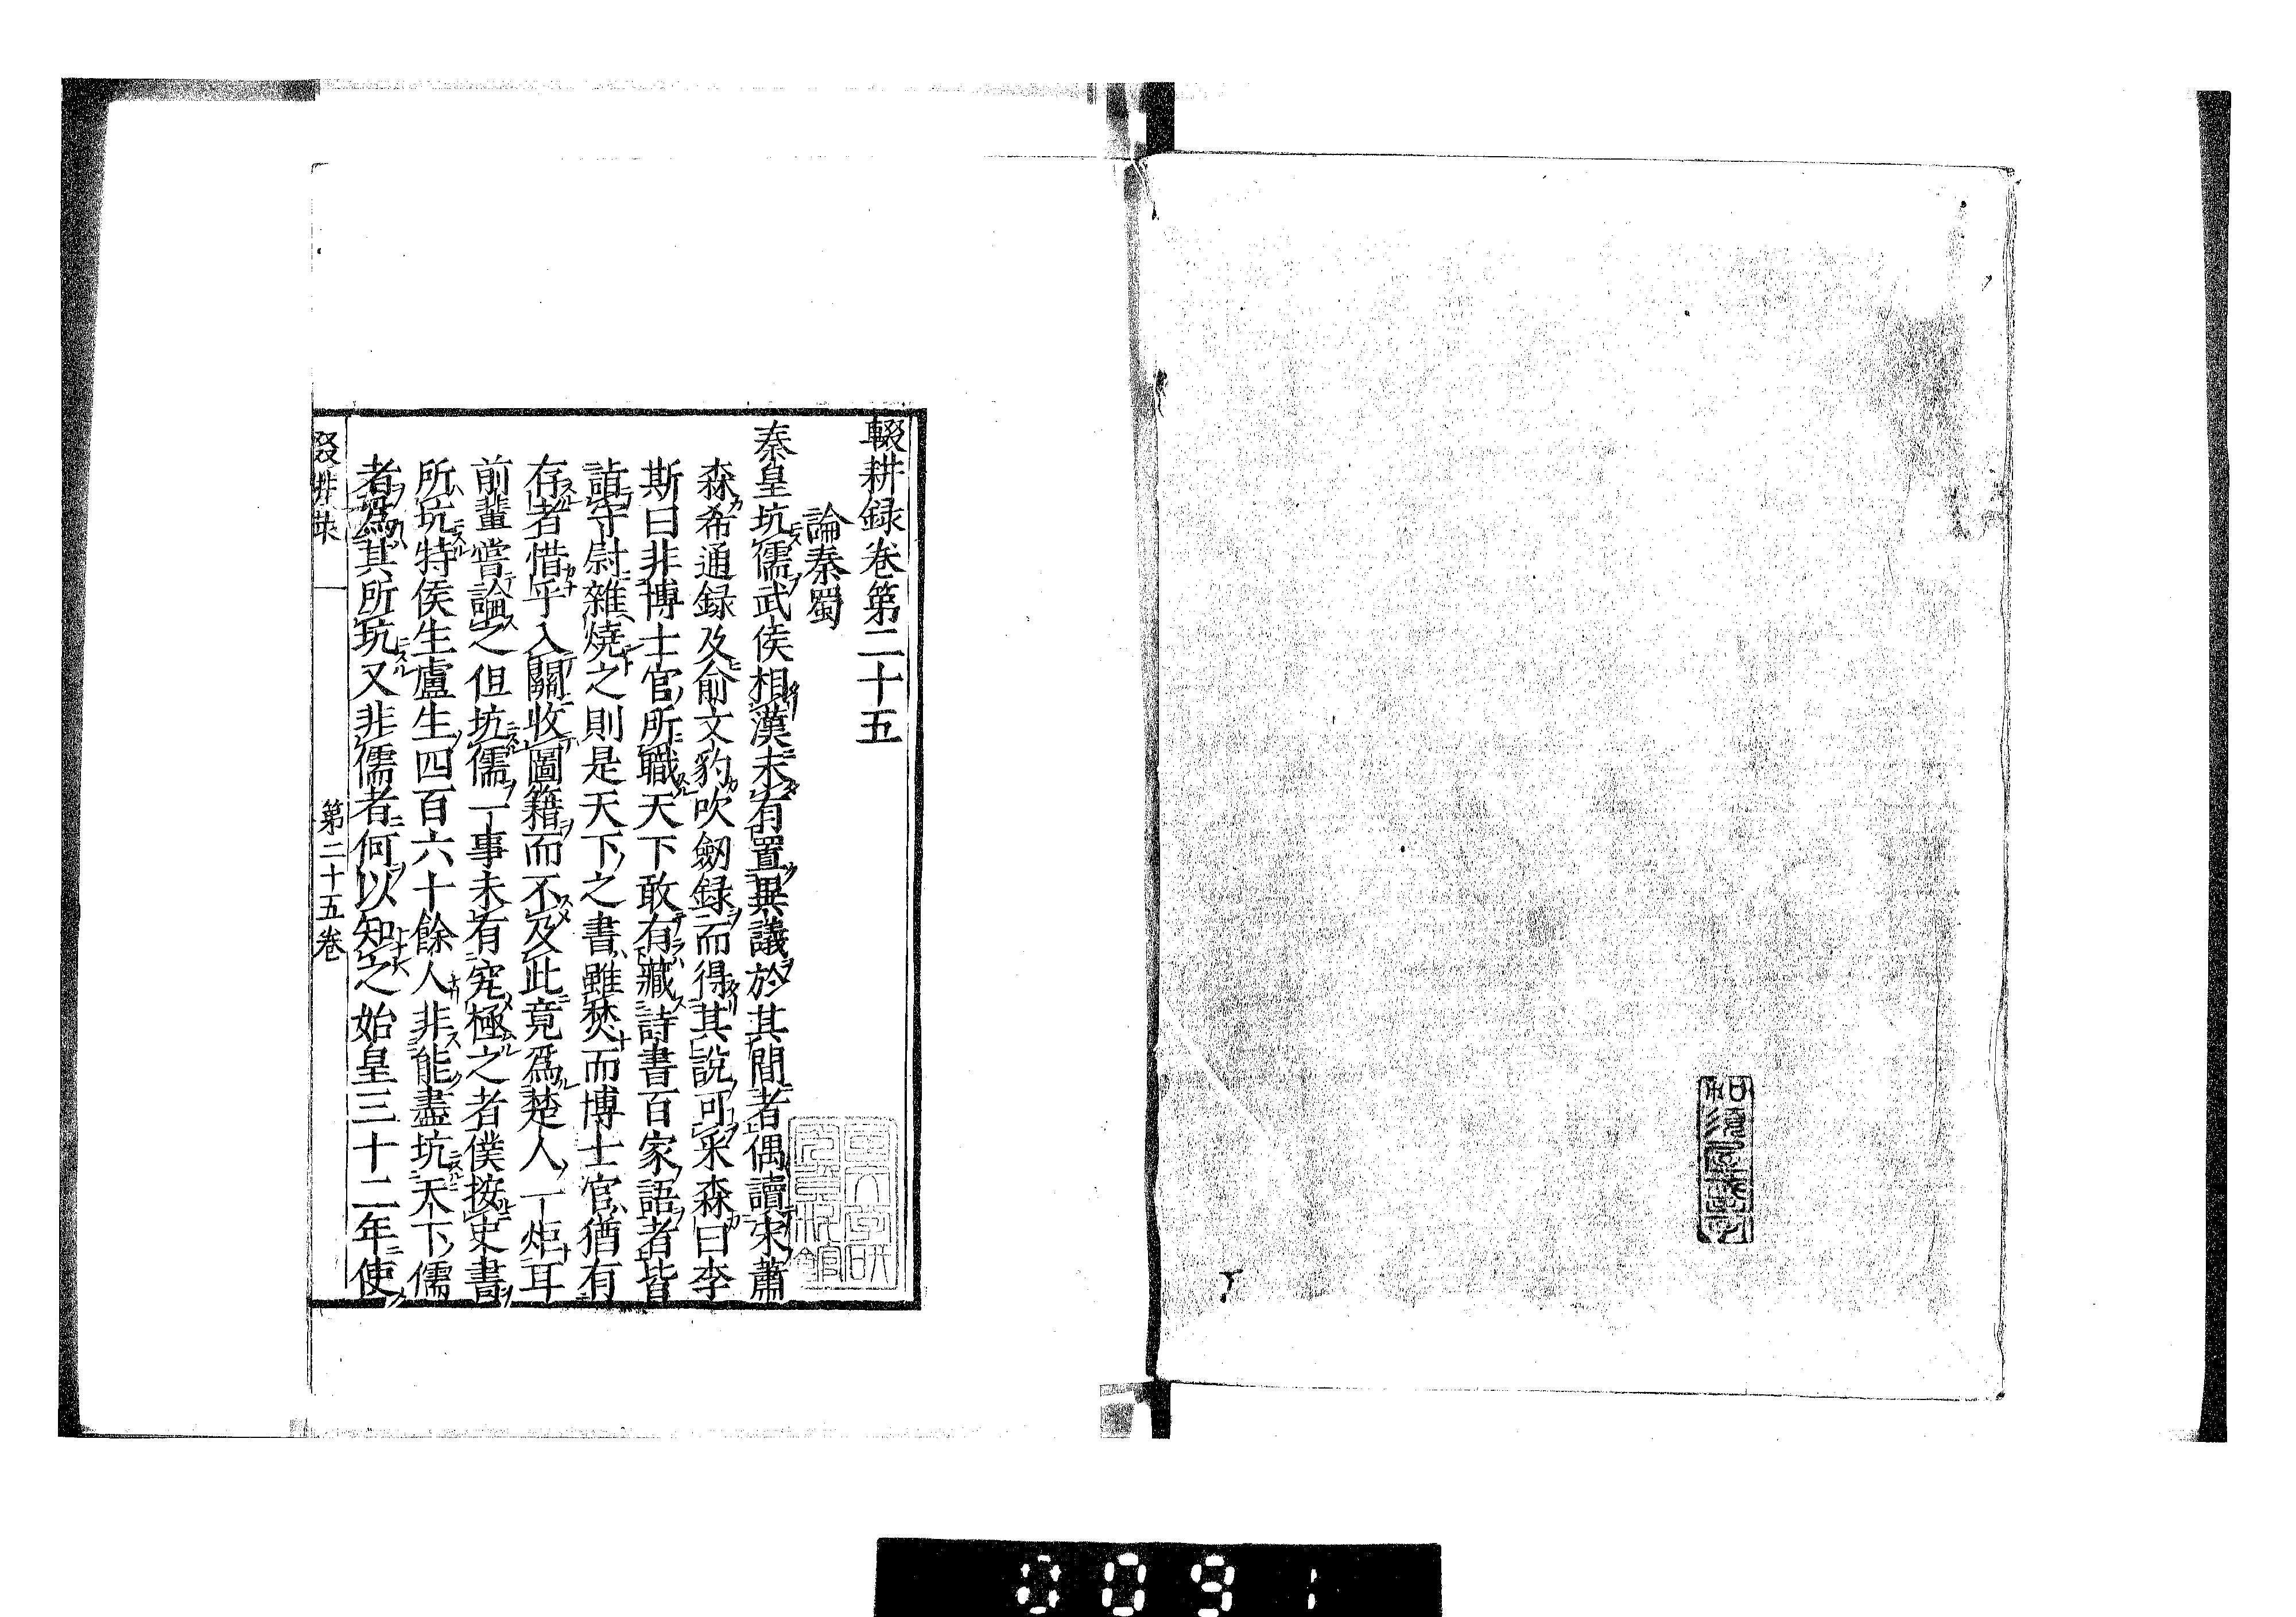 輟耕録卷第二十五
論秦蜀
秦皇坑儒武侯相漢未有置異議於其間者偶讀宋蕭
森希通録及俞文豹吹劒録而得其說可采森曰李
斯曰非博士官所職天下敢有藏詩書百家語者皆
詣守尉雜燒之則是天下之書雖焚而博士官猶有
存者惜乎入關收圖籍而不及此竟爲楚人一炬耳
前輩嘗論之但坑儒一事未有究極之者僕按史書
所坑特侯生盧生四百六十餘人非能盡坑天下儒
者爲其所坑又非儒者何以知之始皇三十二年使
第二十五卷
0091